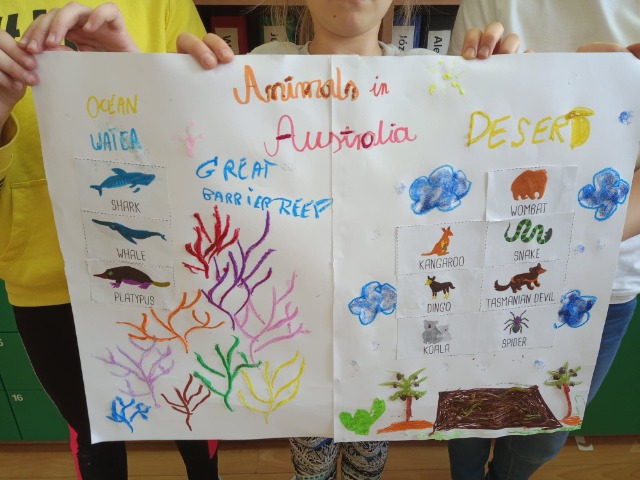 Animals in
Australia
OCEAN
WATER
GREAT
BARRIER REEF
SHARK
WHALE
PLATYPUS
DESERT
WOMBAT
KANGAROO
SNAKE
DINGO
TASMANIAN DEVIL
KOALA
SPIDER
16